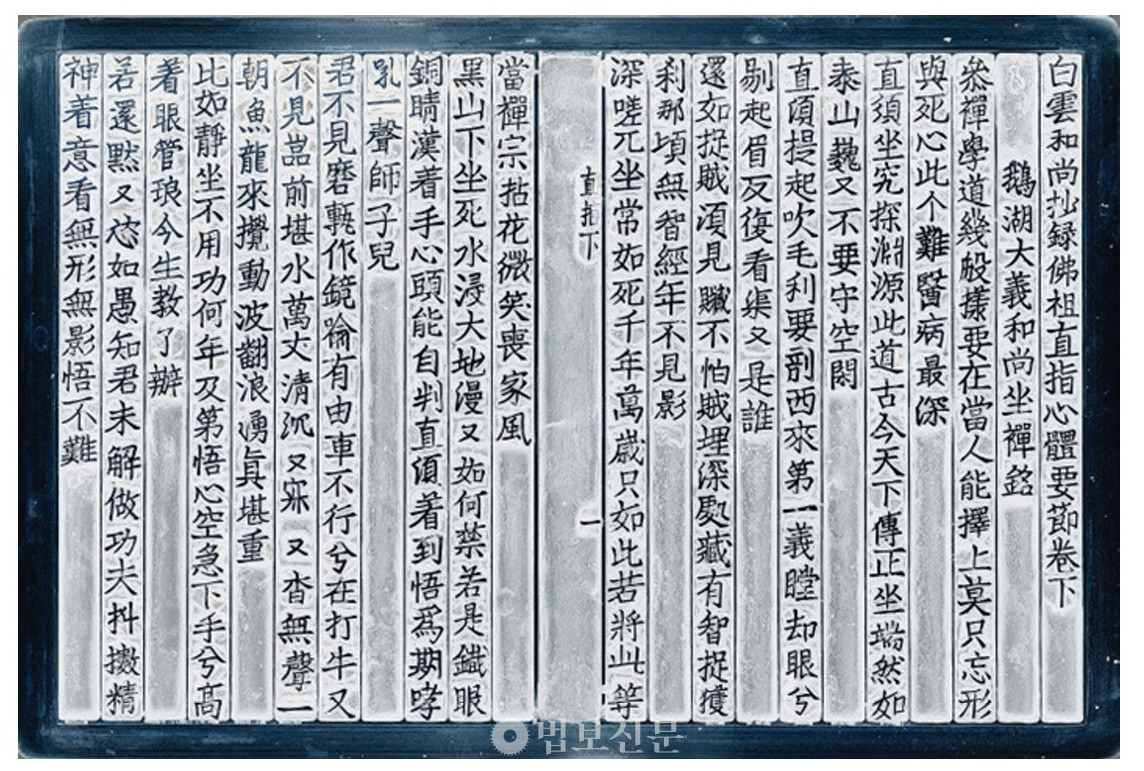 白雲和尚抄録佛祖直指心體要節卷下
鵝湖大義和尚坐禪銘
叅禪學道幾般樣要在當人能擇上莫只忘形
與死心此个難醫病最深
直須坐究探淵源此道古今天下傳正坐端然如
泰山巍又不要守空閑
直須提起吹毛利要剖西來第一義瞠却眼兮
剔起眉反復看渠又是誰
還如捉賊須見贓不怕賊埋深處藏有智捉獲
刹那頃無智經年不見影
深嗟兀坐常如死千年萬歲只如此若將此等
直指下 一
當禪宗拈花微笑喪家風
黑山下坐死水浸大地漫又如何禁若是鐵眼
銅睛漢着手心頭能自判直須着到悟爲期哮
吼一聲師子兒
君不見磨甎作鏡喻有由車不行兮在打牛又
不見嵓前堪水萬丈清沉又寐又杳無聲一
朝魚龍來攪動波翻浪湧眞堪重
比如靜坐不用功何年及第悟心空急下手兮高
着眼管琅今生教了辦
若還默又恣如愚知君未解做功夫抖擻精
神着意看無形無影悟不難
법보신문